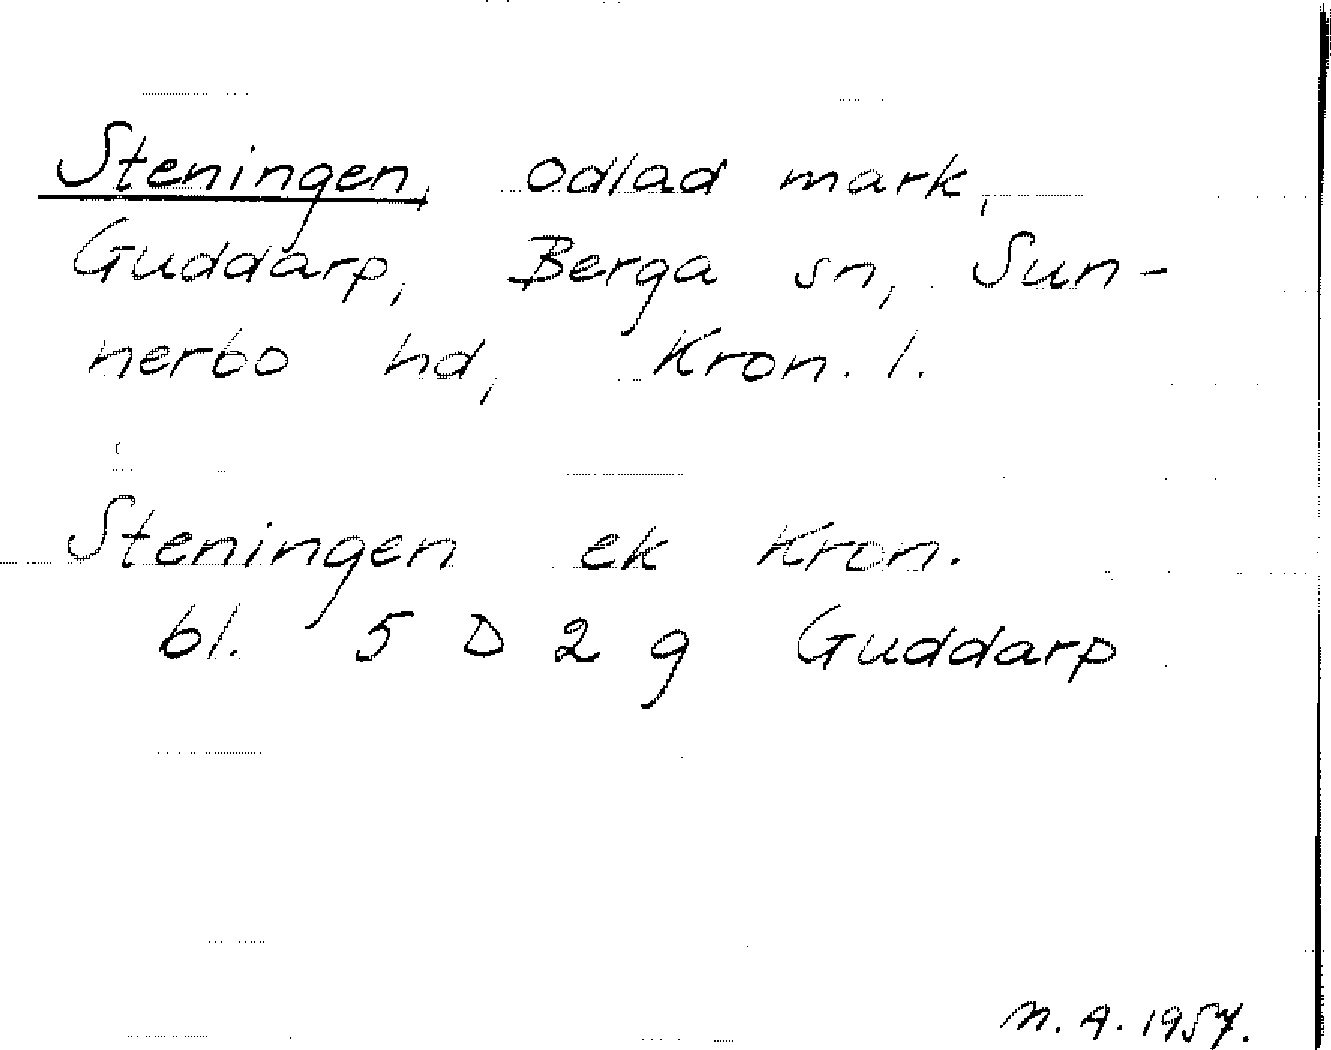 Steningen, odlad mark,
Guddarp, Berga sn, Sun-
nerbo hd, Kron. l.
Steningen ek Kron.
bl. 5 D 2 g Guddarp
N. A. 1957.